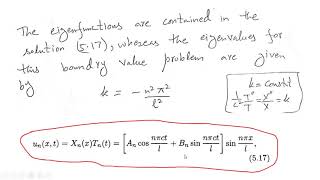 The eigenfunctions are contained in the
solution (5.17), whereas the eigenvalues for
this boundry value problem are given
by k = - n²π²/l²
k = constt
1/c² T''/T = X''/X = k
uₙ(x, t) = Xₙ(x)Tₙ(t) = [Aₙ cos nπct/l + Bₙ sin nπct/l] sin nπx/l,
(5.17)